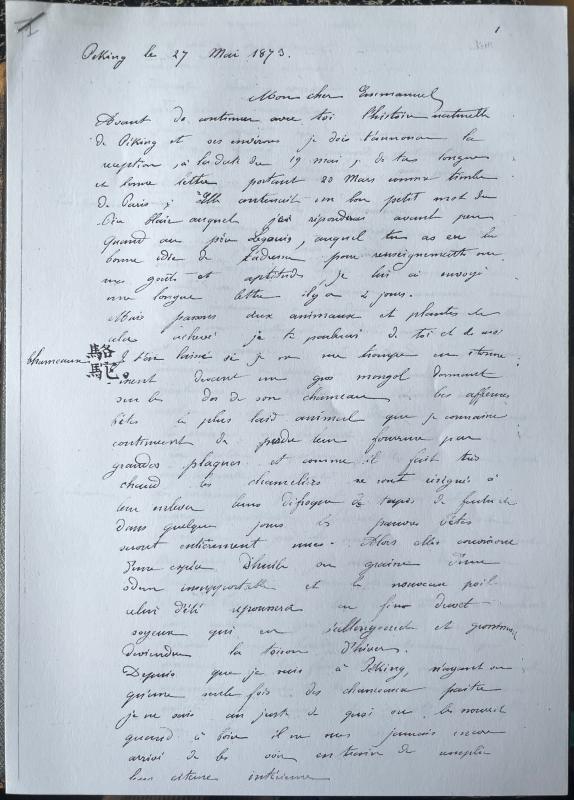 1
Péking le 27 Mai 1873.
Mon cher Emmanuel
Avant de continuer avec toi l'histoire naturelle
de Péking et ses environs je dois t'annoncer la
reception, à la date du 19 mai, de ta longue
et bonne lettre portant 20 Mars comme timbre
de Paris; Elle contenait un bon petit mot du
Père auquel je répondrai avant peu
quand au père, auquel tu as eu la
bonne idée de t'adresser pour renseignements sur
mes goûts et aptitudes je lui ai envoyé
une longue lettre il y a 2 jours.
Mais passons aux animaux et plantes
cela achevé je te parlerai de toi et de moi
chameaux 駱駝. Je t'ai laissé si je ne me trompe en
devant un gros mongol dormant
sur le dos de son chameau. Ces affreuses
bêtes le plus laid animal que je connaisse
continuent de perdre leur fourrure par
grandes plaques et comme il fait très
chaud les chameliers se sont résignés à
leur enlever leurs
dans quelques jours les pauvres bêtes
seront entièrement nues. Alors elles
d'une espèce d'huile ou graisse d'une
odeur insupportable et le nouveau poil
celui d'été repoussera en fin duvet
soyeux qui en s'allongeant et
deviendra la toison d'hiver.
Depuis que je suis à Péking, n'ayant vu
qu'une seule fois des chameaux paître
je ne sais au juste de quoi on les nourrit
quand à boire il ne m'est jamais encore
arrivé de les voir en train de remplir
leur citerne intérieure